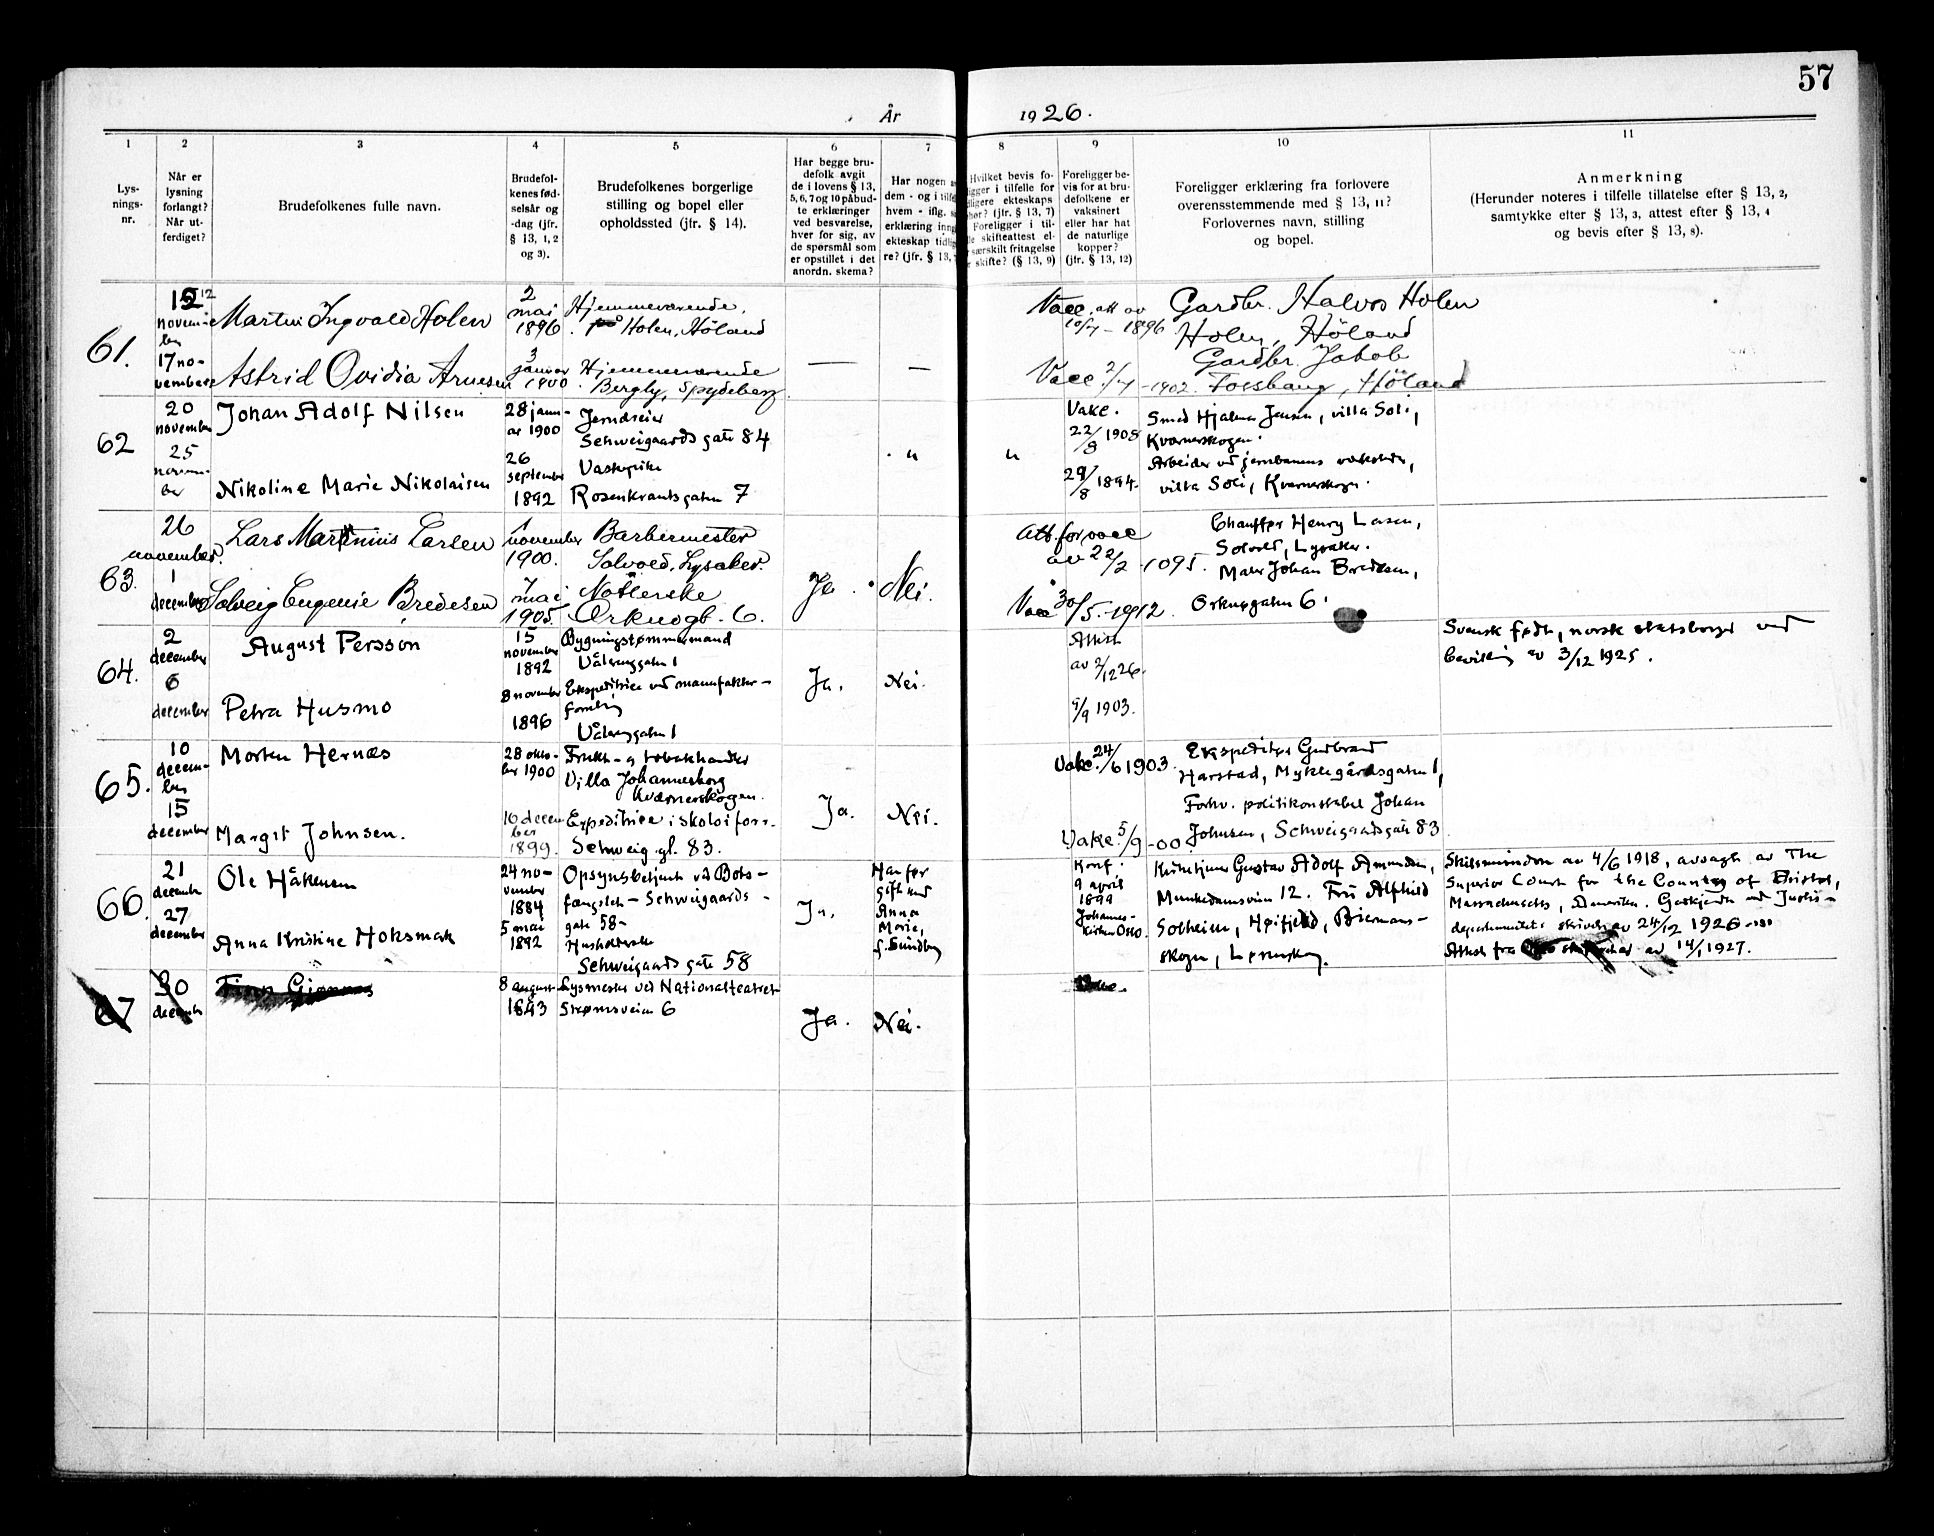 57
År 1926.
1
Lys-
nings-
nr.
2
Når er
lysning
forlangt?
Når ut-
ferdiget?
3
Brudefolkenes fulle navn.
4
Brudefol-
kenes fød-
selsår og
-dag (jfr.
§ 13, 1, 2
og 3).
5
Brudefolkenes borgerlige
stilling og bopel eller
opholdssted (jfr. § 14).
6
Har begge bru-
defolk avgit
de i lovens § 13,
5, 6, 7 og 10 påbud-
te erklæringer
ved besvarelse,
hver for sig, av
de spørsmål som
er opstillet i det
anordn. skema?
7
Har nogen
dem - og i
hvem - iflg.
erklæring
ekteskap
re? (jfr. § 13,
8
Hvilket bevis fo-
ligger i tilfelle for
ekteskaps
(jfr. § 13, 7)
Foreligger i til-
skifteattest el-
særskilt fritagelse
skifte? (§ 13, 9)
9
Foreligger be-
vis for at bru-
defolkene er
vaksinert
eller har hat
de naturlige
kopper?
(jfr. § 13, 12)
10
Foreligger erklæring fra forlovere
overensstemmende med § 13, 11?
Forlovernes navn, stilling
og bopel.
11
Anmerkning
(Herunder noteres i tilfelle tillatelse efter § 13, 2,
samtykke efter § 13, 3, attest efter § 13, 4
og bevis efter § 13, 8).
61.
novem-
ber
17 no-
vember
Martin Ingvald Holen
Astrid Ovidia Arnesen
2
mai
1896
3
januar
1900
Hjemmeværende,
på Holen, Høland
Hjemmeværende
Bergly, Spydeberg
—
—
Vacc. att av
10/7 - 1896
Vacc 2/7 - 1902.
Gardbr. Halvor Holen
Holen, Høland
Gardbr. Jakob
Fossbang, Høland
62
20
november
25
novem-
ber
Johan Adolf Nilsen
Nikoline Marie Nikolaisen
28 janu-
ar 1900
26
september
1892
Jerndreier
Schweigaards gate 84
Vaskepike
Rosenkrantsgaten 7
"
"
Vakc.
22/8 1905
29/8 1894.
Smed Hjalmar Jensen, villa Soli,
Kværnerskogen.
Arbeider ved jernbanens verksteder,
villa Soli, Kværnerskogen.
63.
26
november.
1
december
Lars Martinius Larsen
Solveig Eugenie Bredesen
1
november
1900.
7
mai
1905.
Barbermester
Solvold, Lysaker.
Nøtlerske
Orknøgt. 6.
Ja.
Nei.
Att. for vacc
av 22/2 - 1095.
Vacc 30/5 - 1912.
Chauffør Henry Larsen,
Solvold, Lysaker.
Maler Johan Bredesen,
Orknøgaten 6.
64.
2
december
6
december
August Persson
Petra Husmo
15
november
1892
8 november
1896
Bygningstømmermand
Vålerenggaten 1
Ekspeditrice ved manufaktur-
forretning
Vålerenggaten 1
Ja.
Nei.
Attest
av 2/12 26.
9/9 1903.
Svensk født, norsk statsborger ved
bevilling av 3/12 1925.
65.
10
decem-
ber
15
december
Morten Hernæs
Margit Johnsen.
28 okto-
ber 1900
10 decem
ber
1899.
Frukt- og tobakkhandler
Villa Johannesborg
Kværnerskogen.
Expeditrice i skotøiforr.
Schweig. gt. 83.
Ja.
Nei.
Vakc. 24/6 1903.
Vakc. 5/9 - 00
Ekspeditør Gudbrand
Harstad, Myklegårdsgaten 1,
Forhv. politikonstabel Johan
Johnsen, Schweigaardsgate 83
66.
21
december
27
december
Ole Håkensen
Anna Kristine Hoksmark
24 no-
vember
1884
5 mai
1892
Opsynsbetjent ved Bots-
fængslet - Schweigaards-
gate 58-
Husholderske
Schweigaards gate 58
Ja.
Han før
gift med
Anna
Marie,
f. Sundby
Konf.
9 april
1899
Johannes-
kirken Oslo.
Kirketjener Gustav Adolf Amundsen,
Munkedamsveien 12. Fru Alfhild
Solheim, Høifjeld, Biermans-
skogen, Lørenskog.
Skilsmissedom av 4/6 1918, avsagt av The
Superior Court for the County of Bristol,
Massachusetts, Amerika. Godkjendt ved Justis-
departementets skrivelse av 24/12 1926 -
Attest fra av 14/1 1927.
67
30
december
Finn Gjønnes
8 august
1893
Lysmester ved Nationalteatret
Strømsveien 6
Ja.
Nei.